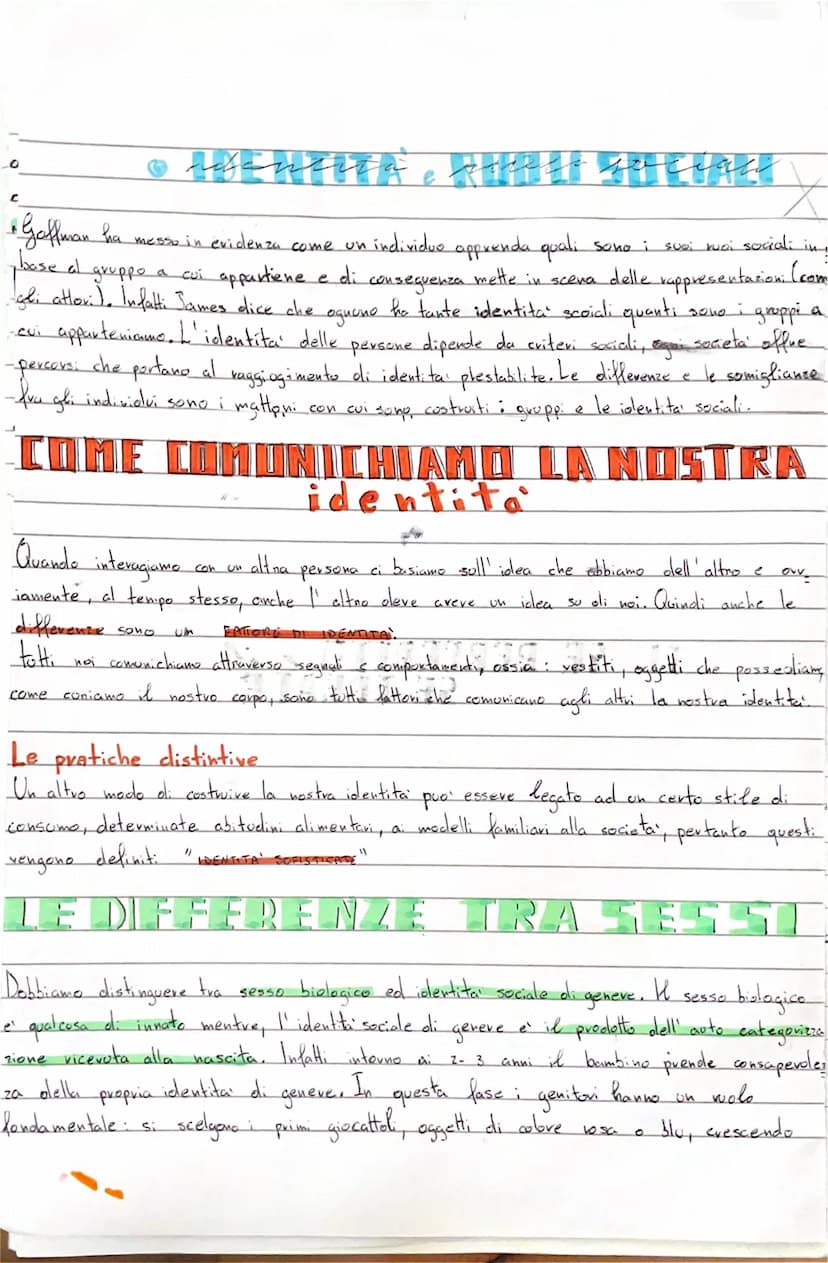 IDENTITÀ e RUOLI SOCIALI
Goffman ha messo in evidenza come un individuo apprenda quali sono i suoi ruoi sociali in
base al gruppo a cui appartiene e di conseguenza mette in scena delle rappresentazioni (com
gli attori). Infatti James dice che ognuno ha tante identità scoidli quanti sono i gruppi a
cui apparteniamo. L'identità delle persone dipende da criteri sociali, ogni società offre
percorsi che portano al raggiogimento di identità prestabilite. Le differenze e le somiglianze
fra gli individui sono i mattoni con cui sono costruiti i gruppi e le identità sociali.
COME COMUNICHIAMO LA NOSTRA
identità
Quando interagiamo con un altra persona ci basiamo sull'idea che abbiamo dell'altro e ovv
iamente, al tempo stesso, anche l'altro deve avere un idea su di noi. Quindi anche le
differenze sono un FATTORE DI IDENTITÀ.
tutti noi comunichiamo attraverso segnali e comportamenti, ossia: vestiti, oggetti che possediam,
come curiamo il nostro corpo, sono tutti fattori che comunicano agli altri la nostra identità.
Le pratiche distintive
Un altro modo di costruire la nostra identità può essere legato ad un certo stile di
consumo, determinate abitudini alimentari, ai modelli familiari alla società, pertanto questi
vengono definiti "IDENTITÀ SOFISTICATE"
LE DIFFERENZE TRA SESSI
Dobbiamo distinguere tra sesso biologico ed identità sociale di genere. Il sesso biologico
è qualcosa di innato mentre, l'identità sociale di genere è il prodotto dell'auto categorizza
zione ricevuta alla nascita. Infatti intorno ai 2-3 anni il bambino prende consapevolez
za della propria identità di genere. In questa fase i genitori hanno un ruolo
fondamentale: si scelgono i primi giocattoli, oggetti di colore rosa o blu, crescendo